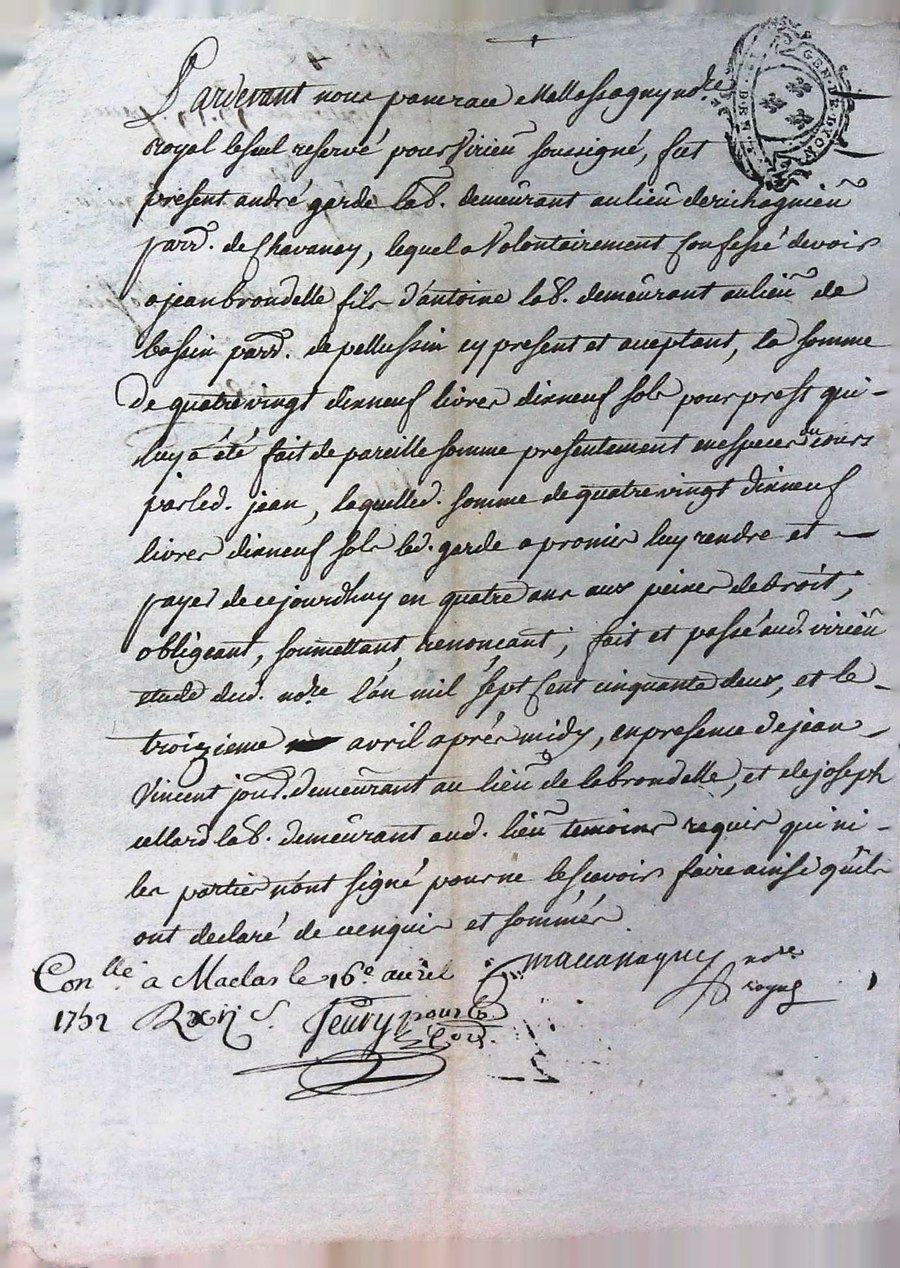 GEN. DE LYON
Pardevant nous pancrace Mallassagny no.re
royal le seul reservé pour Virieu soussigné, fut
present andré garde lab. demeurant au lieu de richagnieu
parr. de Chavanay, lequel a Volontairement Confessé devoir
a jean brondelle fils d'antoine lab. demeurant au lieu de
bossin parr. de pellussin cy present et aceptant, la somme
de quatre vingt dixneuf livres dixneuf sols pour prest qui
luy a été fait de pareille somme presentement en especes du cours
par led. jean, laquelled. somme de quatre vingt dixneuf
livres dixneuf sols led. garde a promis luy rendre et
payer de ce jourdhuy en quatre ans aux peines de droit,
obligeant, soumettant, renonçant, fait et passé aud. virieu
etude dud. no.re l'an mil sept Cent cinquante deux, et le
troizieme avril après midy, en presence de jean
Vincent jour. demeurant au lieu de la brondelle, et de joseph
cellard lab. demeurant aud. lieu temoins requis qui ni
les parties n'ont signé pour ne le scavoir faire ainsi qu'ils
ont declaré de ce enquis et sommés
no.re
royal
Con.llé a Maclas le 16e avril
1752 Jeury pour le